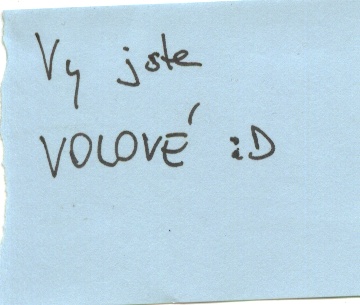 Vy jste
VOLOVÉ :D